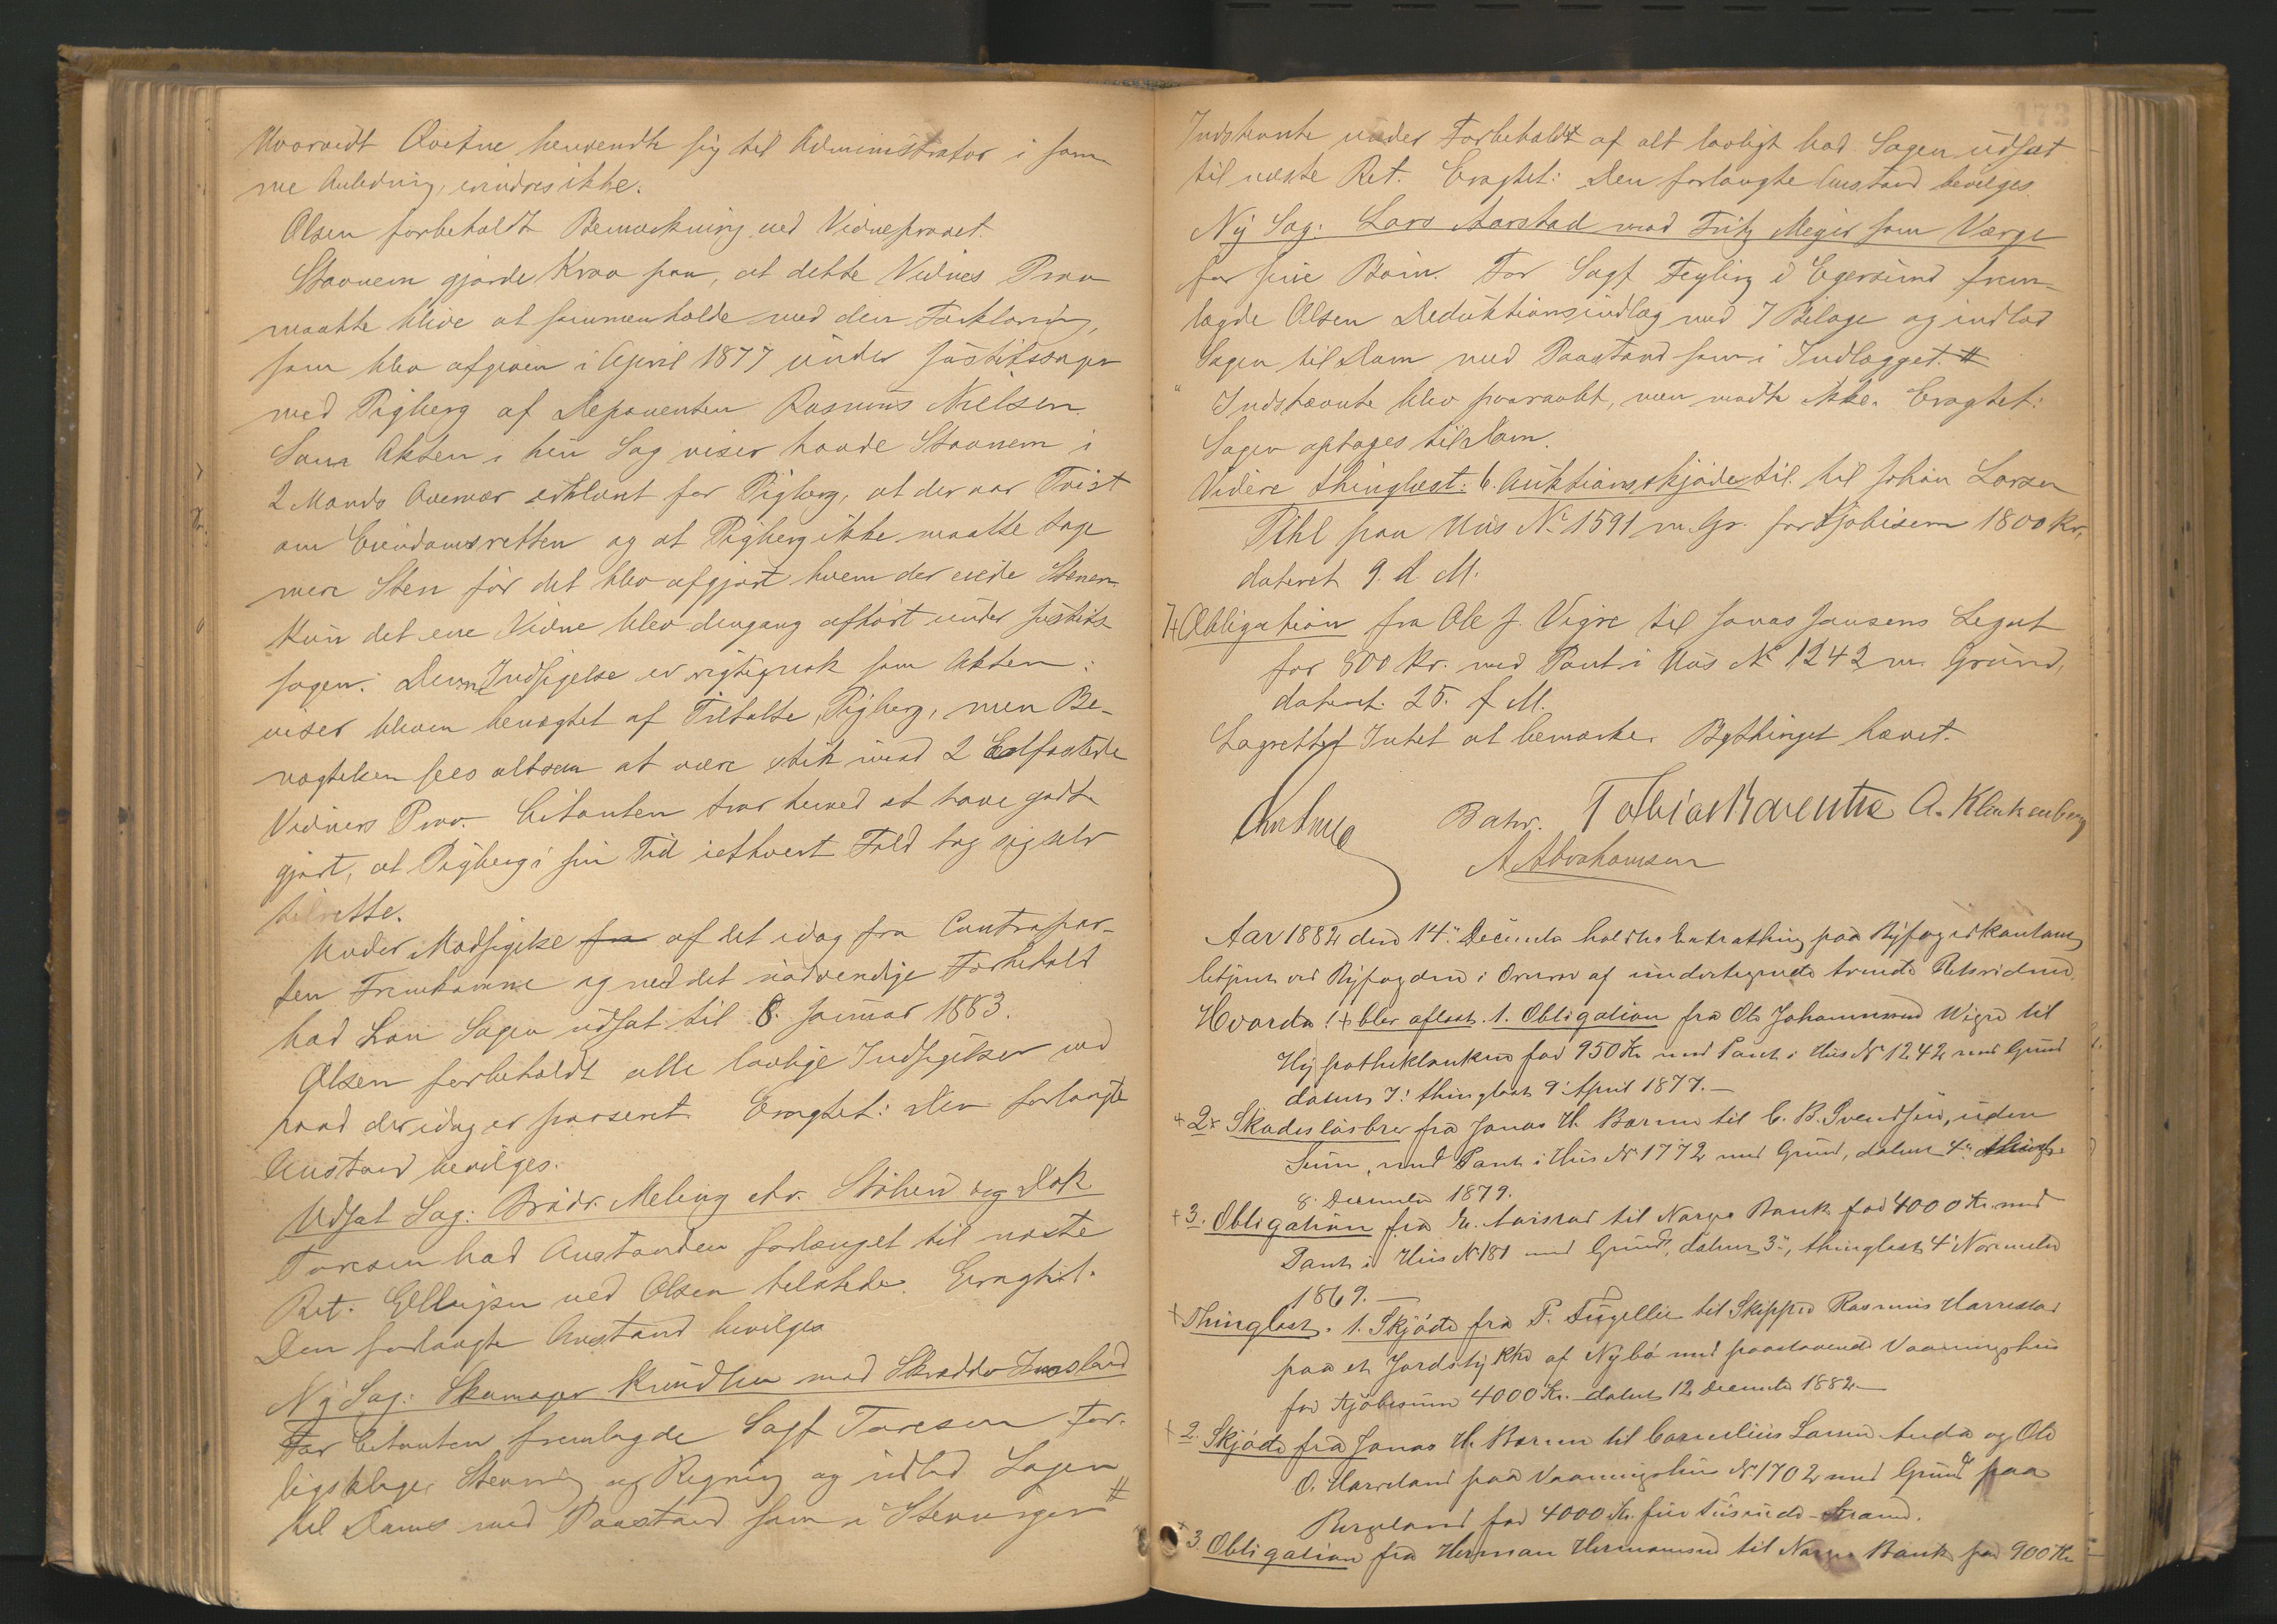 Hvorvidt Qvitne henvendte sig til Administrator i sam-
me Anledning, erindres ikke.
Olsen forbeholdt Bemærkning ved Vidneprovet.
Stavnem gjorde Krav paa, at dette Vidnes Prov
maatte blive at sammenholde med den Forklaring,
som blev afgiven i April 1877 under Justitssagen
mod Pigberg af Deponenten Rasmus Nielsen.
Som Akten i hin Sag viser havde Stavnem i
2 Mands Overvær erklært for Pigberg, at der var Tvist
om Eiendomsretten og at Pigberg ikke maatte tage
mere Sten før det blev afgjort hvem der eiede Stenen.
Kun det ene Vidne blev dengang afhørt under Justits-
sagen. Denne Indsigelse er rigtignok som Akten
viser bleven benægtet af Tiltalte, Pigberg, men Be-
nægtelsen sees altsaa at være stik imod 2 Edfæstede
Vidners Prov. Citanten tror herved at have godt-
gjort, at Pigberg i sin Tid iethvert Fald tog sig selv
tilrette.
Under Modsigelse fra af det idag fra Contrapar-
ten Fremkomne og med det nødvendige Forbehold
bad han Sagen udsat til 8. Januar 1883.
Olsen forbeholdt alle lovlige Indsigelser ved
hvad der idag er passeret. Eragtet: Den forlangte
Anstand bevilges.
Udsat Sag: Brødr. Meling ctr. Stöhen og Dok
Toresen bad Anstanden forlænget til næste
Ret. Ellingsen ved Olsen tilstede. Eragtet.
Den forlangte Anstand bevilges
Ny Sag: Skomager Knudsen mod Skrædder Ivesland
For Citanten fremlagde Sagf Toresen For-
ligsklage, Stevning og Regning og indlod Sagen
til Doms med Paastand som i Stevningen #
Indstevnte under Forbeholdt af alt lovligt bad Sagen udsat
til næste Ret. Eragtet: Den forlangte Anstand bevilges
Ny Sag: Lars Aarstad mod Fritz Meyer som Værge
for sine Børn. For Sagf Feyling i Egersund frem-
lagde Olsen Deduktionsindlæg med 7 Bilage og indlod
Sagen til Dom med Paastand som i Indlægget. #
Indstævnte blev paaraabt, men mødte ikke. Eragtet:
Sagen optages til Dom.
Videre thinglæst: 6. Auktionsskjøde til til Johan Larsen
Pihl paa Hus No 1591 m. Gr. for Kjøbesum 1800 Kr,
dateret 9. d. M.
7 Obligation fra Ole J. Vigre til Jonas Jansens Legat
for 800 Kr. med Pant i Hus No 1242 m. Grund,
dateret 25. f. M.
Lagrettet Intet at bemærke. Bythinget hævet.
Tobias Barentse A. Klinkenberg
A Abrahamsen
Aar 1882 den 14. December holdtes Extrathing paa Byfogedkontoret
betjent ved Byfogden i Overvær af undertegnede trende Retsvidner.
Hvorda! blev aflæst. 1. Obligation fra Ole Johannesen Wigre til
Hypothekbanken for 950 Kr med Pant i Hus No 1242 med Grund
datert 7. thinglæst 9. April 1877.—
+ 2. Skadesløsbrev fra Jonas H. Barum til C. B. Svendsen, uden
Sum, med Pant i Hus No 1772 med Grund, datert 4. thingl.
8. December 1879.
+ 3. Obligation fra til Norges Bank for 4000 Kr. med
Pant i Hus No 181 med Grund, datert 3., thinglæst 4. November
1869.—
+ Thinglæst. 1. Skjøde fra P. til Skipper Rasmus Harrestad
paa et Jordstykke af Nybø med paastaaende Vaaningshus
for Kjøbesum 4000 Kr. datert 12 December 1882—
+ 2. Skjøde fra Jonas H. Barum til Cornelius Larsen Auda og Ole
O. Harreland paa Vaaningshus No 1702 med Grund paa
Bergeland for 4000 Kr. fire Tusinde
+ 3 Obligation fra Herman Hermansen til Norges Bank for 900 Kr